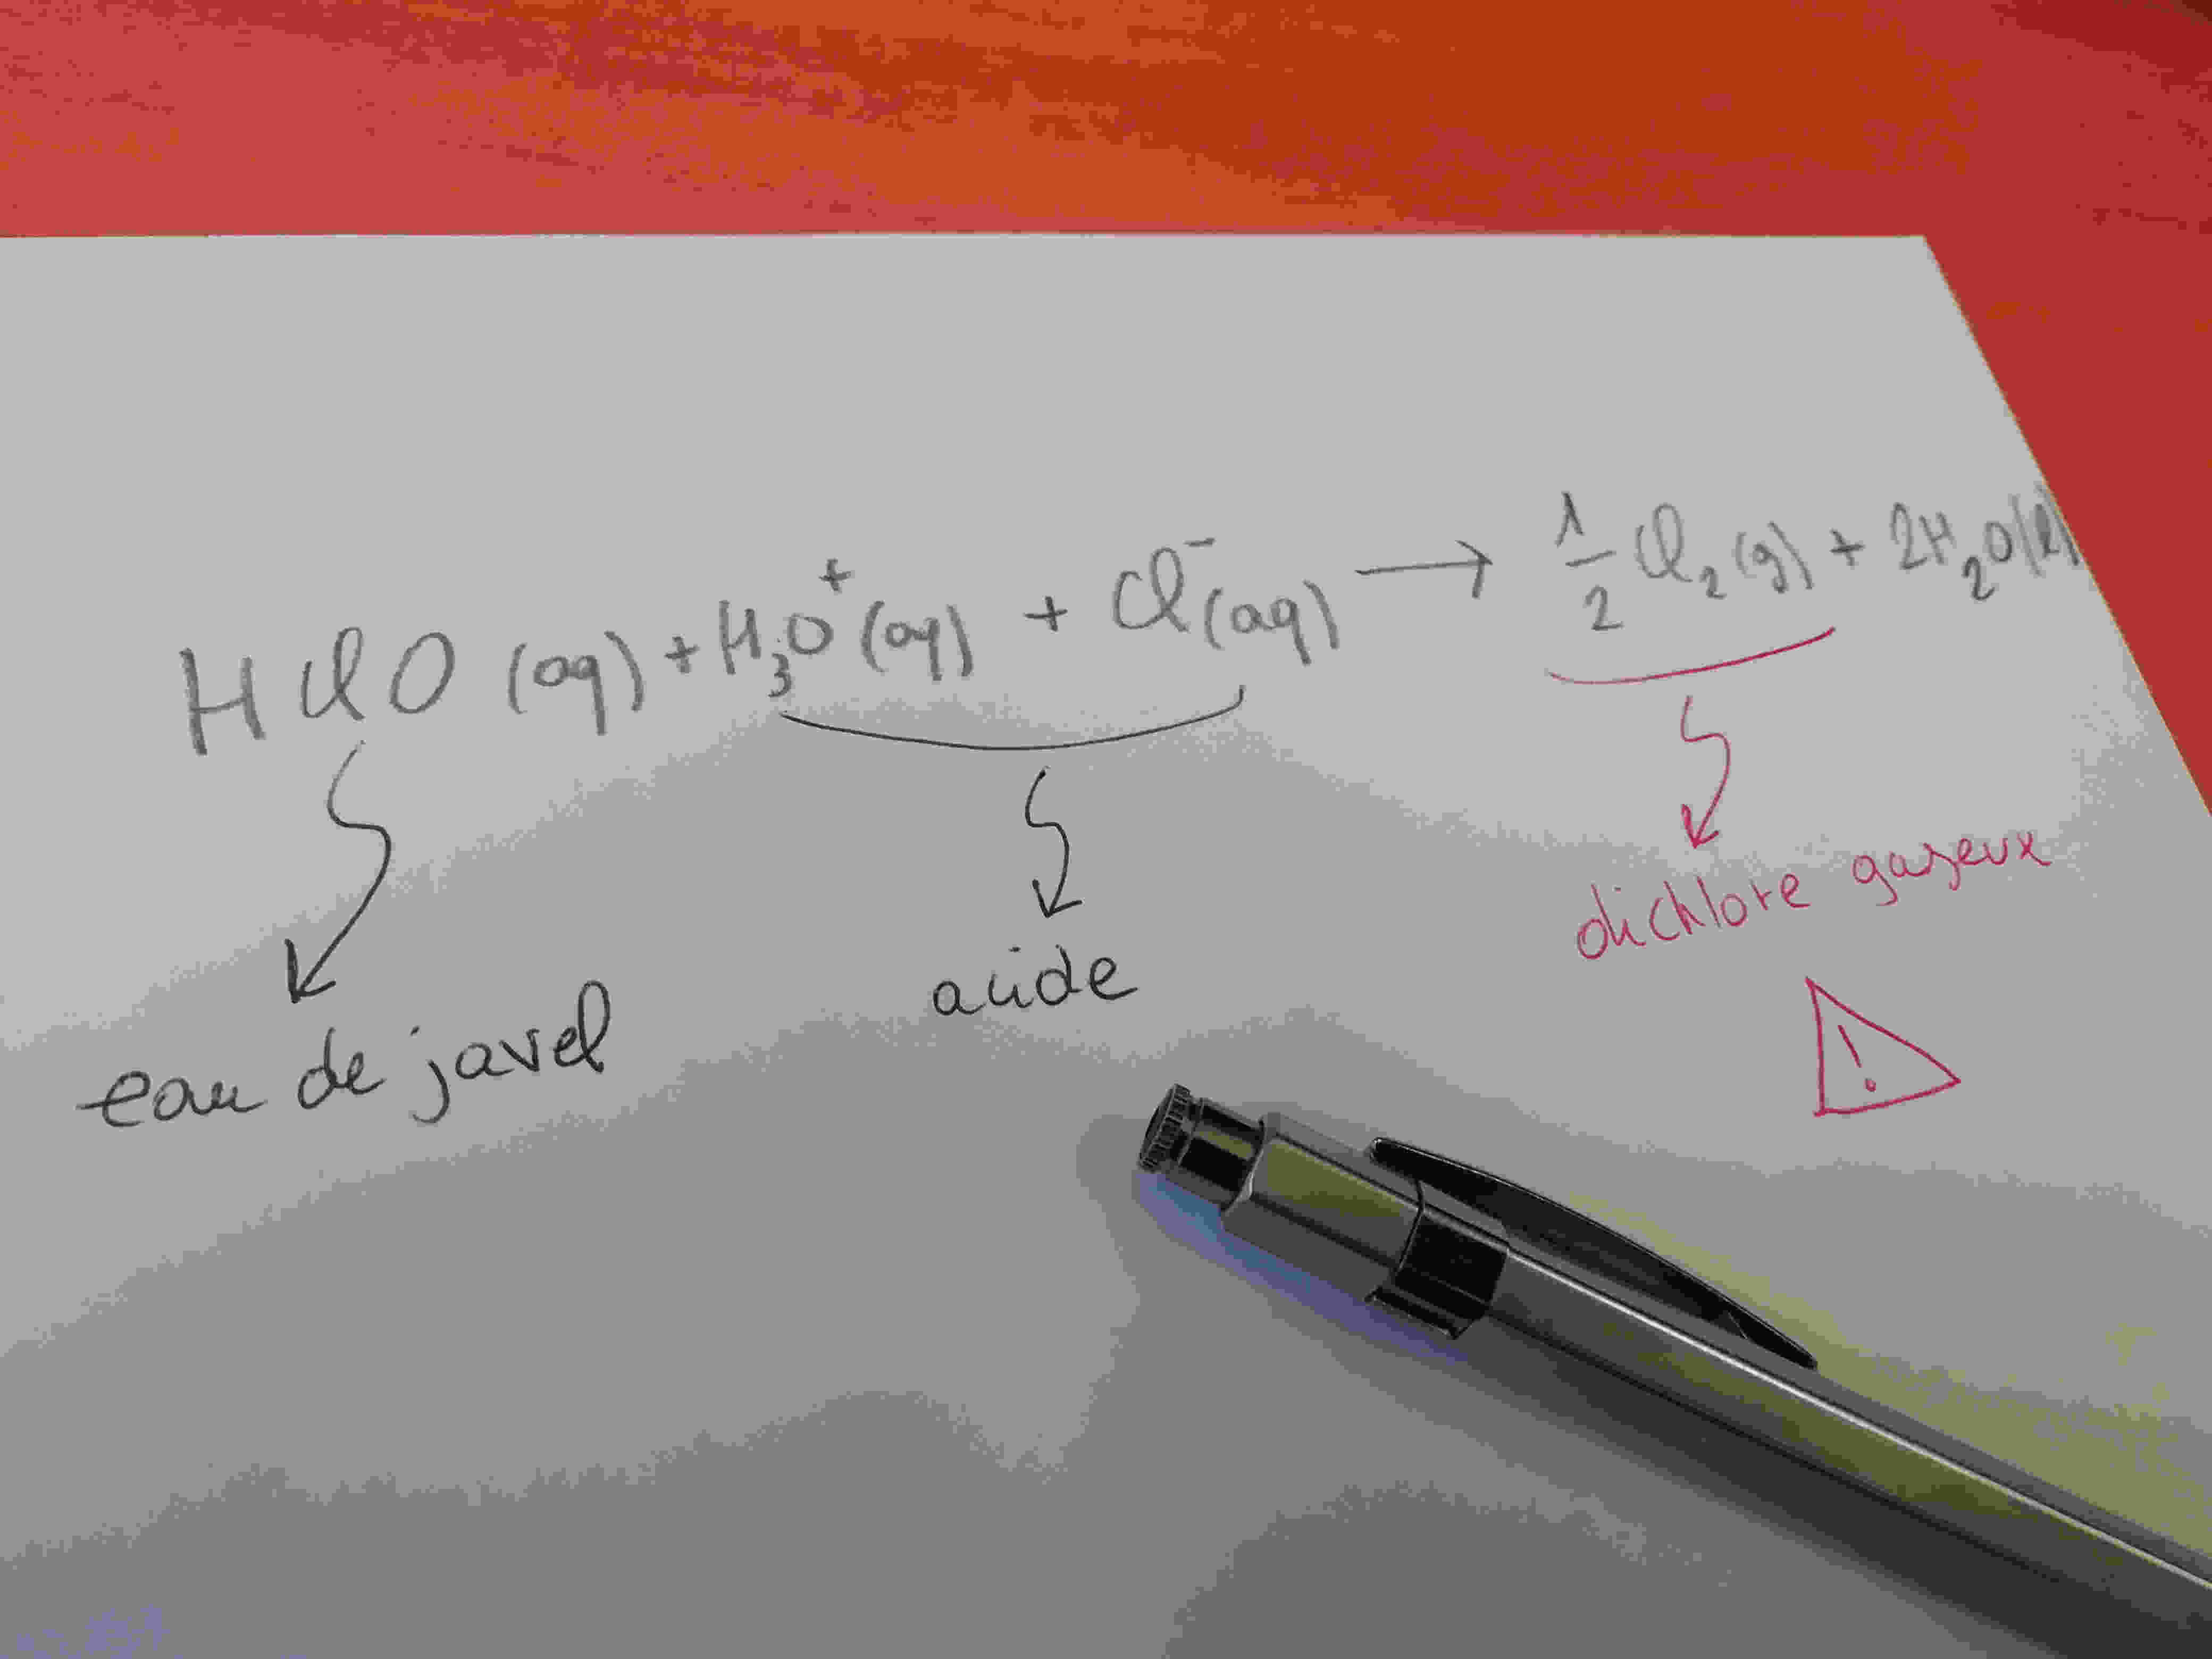 HClO (aq) + H₃O⁺ (aq) + Cl⁻ (aq) → 1/2 Cl₂ (g) + 2H₂O (l)
eau de javel
acide
dichlore gazeux
!